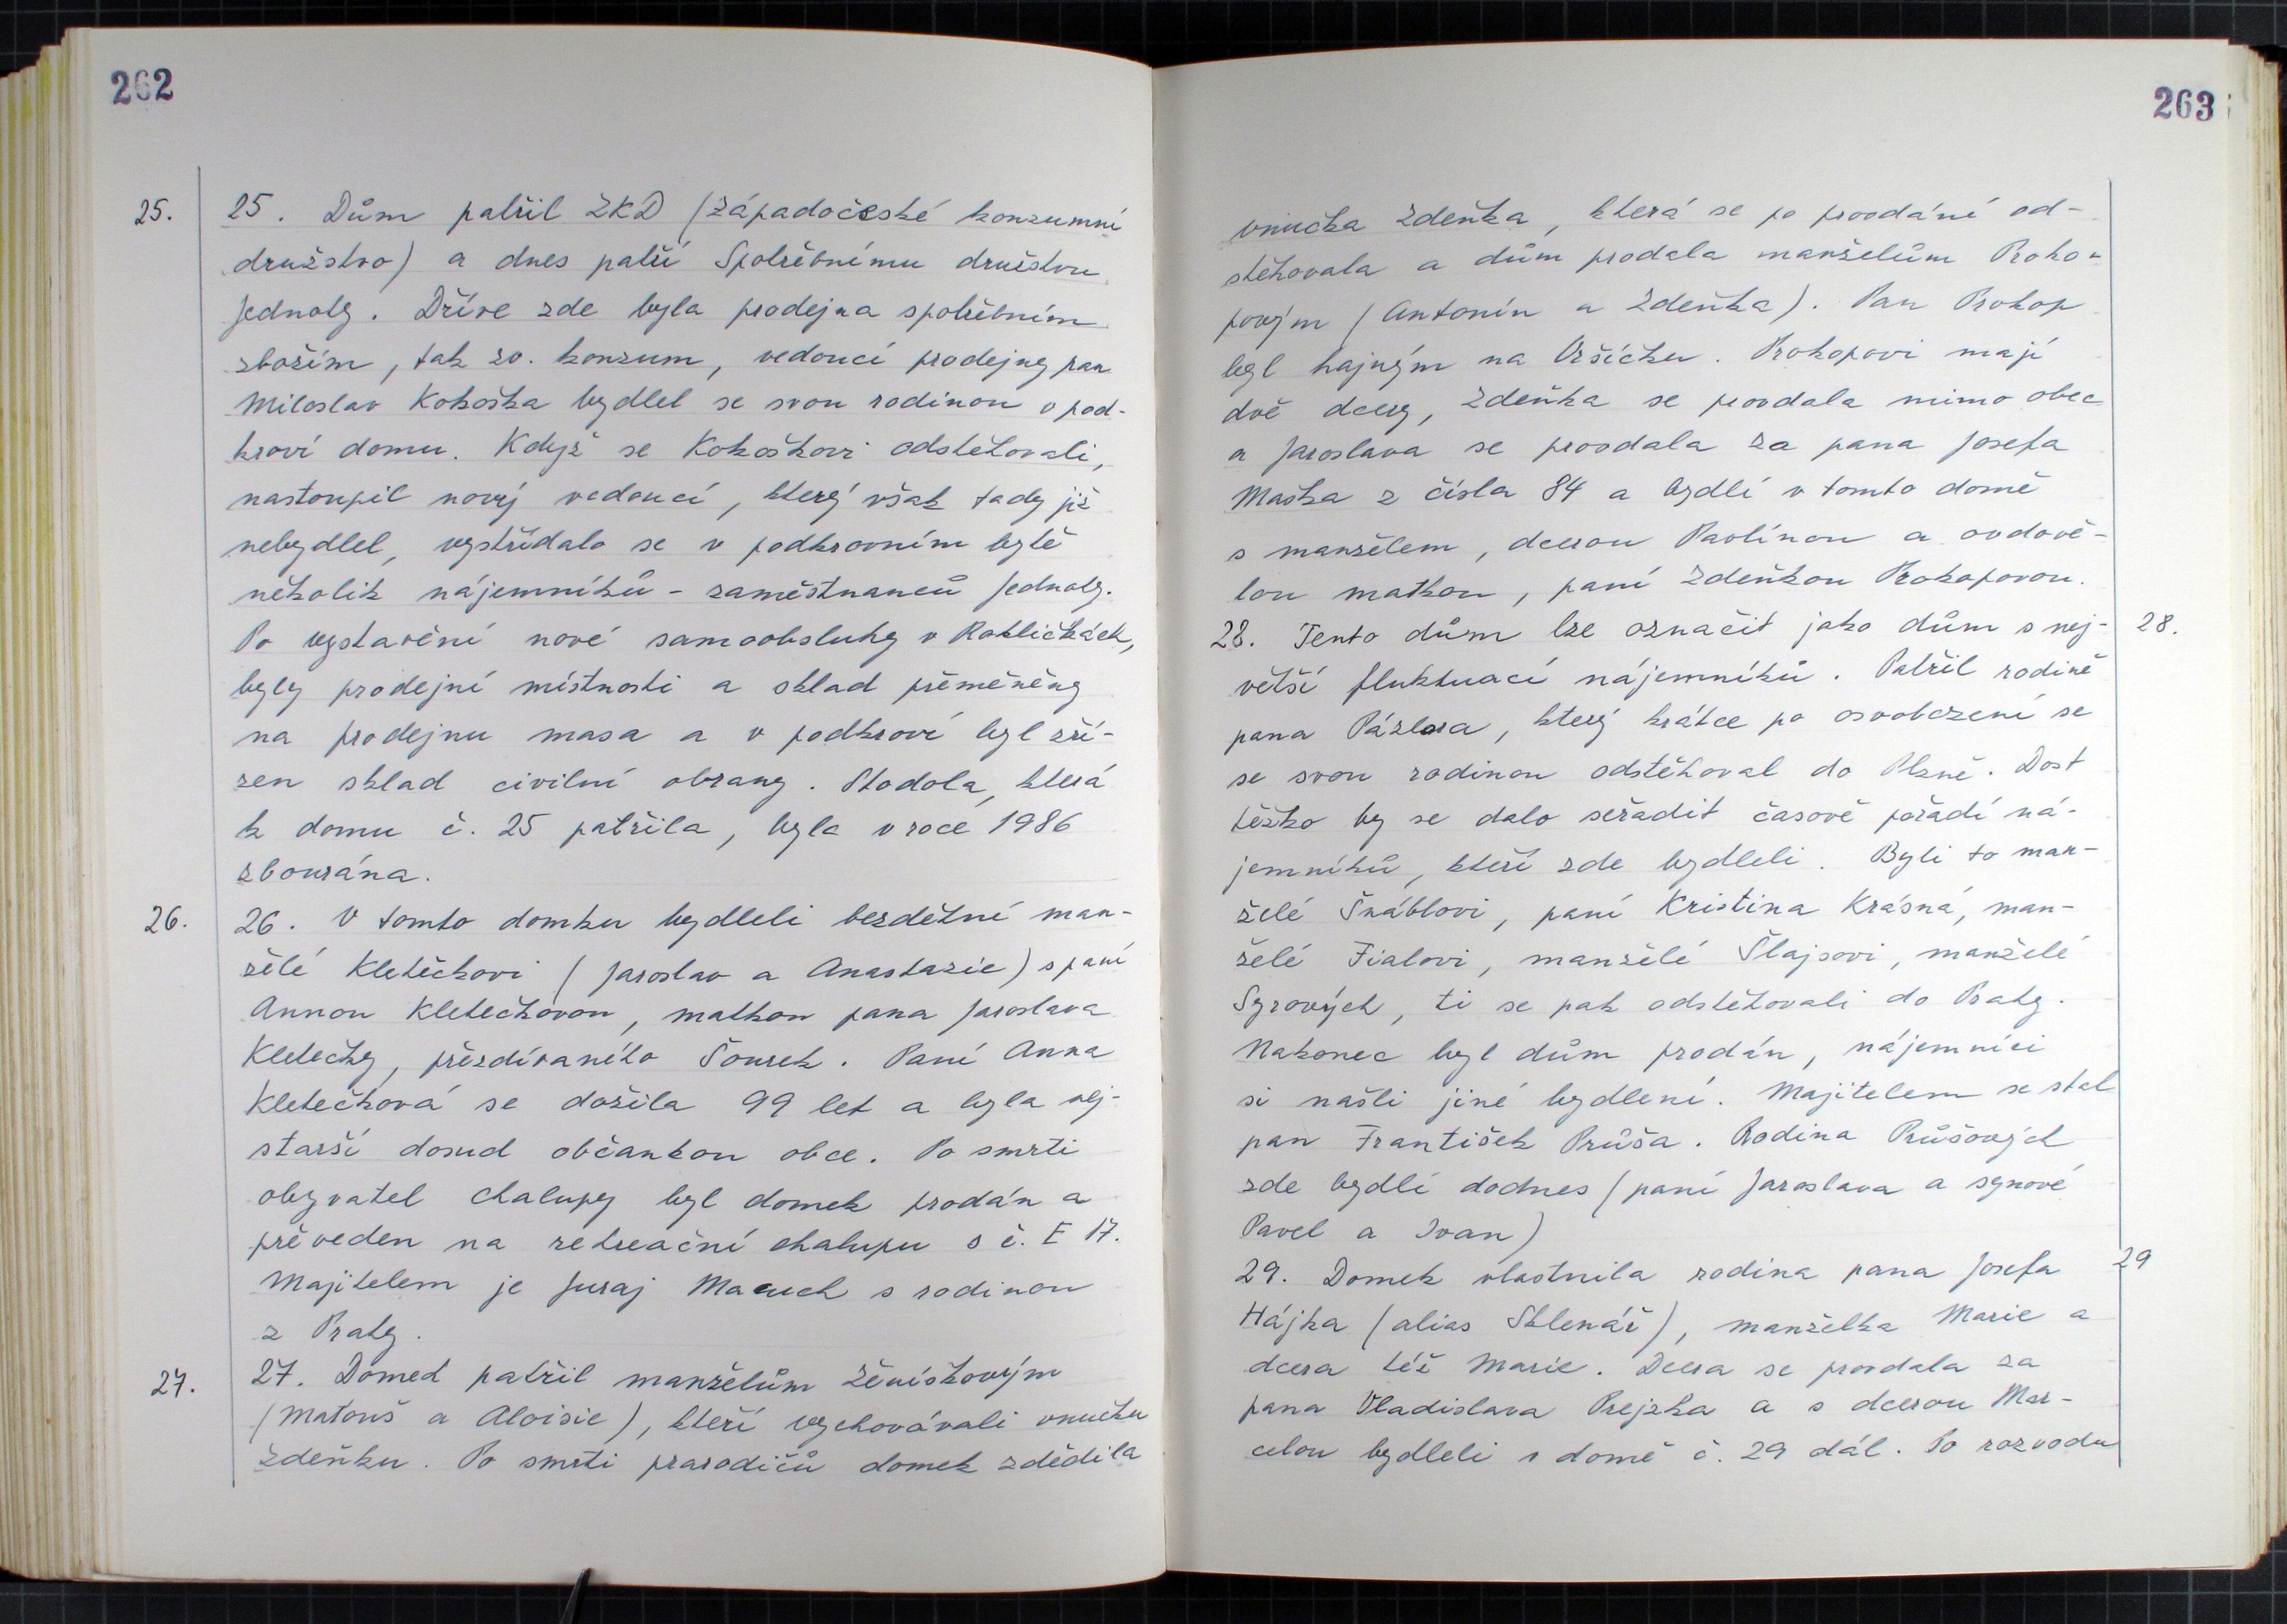 262
25. 25. Dům patřil ZKD (západočeské konzumní
družstvo) a dnes patří Spotřebnímu družstvu
Jednoty. Dříve zde byla prodejna spotřebním
zbožím, tak zv. konzum, vedoucí prodejny pan
Miloslav Kokoška bydlel se svou rodinou v pod-
kroví domu. Když se Kokoškovi odstěhovali,
nastoupil nový vedoucí, který však tady již
nebydlel, vystřídalo se v podkrovním bytě
několik nájemníků - zaměstnanců Jednoty.
Po vystavění nové samoobsluhy v Rohličkách,
byly prodejní místnosti a sklad přeměněny
na prodejnu masa a v podkroví byl zří-
zen sklad civilní obrany. Stodola, která
k domu č. 25 patřila, byla v roce 1986
zbourána.
26. 26. V tomto domku bydleli bezdětní man-
želé Kletečkovi (Jaroslav a Anastazie) s paní
Annou Kletečkovou, matkou pana Jaroslava
Kletečky, přezdívaného Šourek. Paní Anna
Kletečková se dožila 99 let a byla nej-
starší dosud občankou obce. Po smrti
obyvatel chalupy byl domek prodán a
převeden na rekreační chalupu s č. E 17.
Majitelem je Juraj Macuch s rodinou
z Prahy.
27. 27. Domek patřil manželům Ženíškovým
(Matouš a Aloisie), kteří vychovávali vnučku
Zdeňku. Po smrti prarodičů domek zdědila
263
vnučka Zdeňka, která se po provdání od-
stěhovala a dům prodala manželům Proko-
povým (Antonín a Zdeňka). Pan Prokop
byl hajným na Vršíčku. Prokopovi mají
dvě dcery, Zdeňka se provdala mimo obec
a Jaroslava se provdala za pana Josefa
Maška z čísla 84 a bydlí v tomto domě
s manželem, dcerou Pavlínou a ovdově-
lou matkou, paní Zdeňkou Prokopovou.
28. Tento dům lze označit jako dům s nej- 28.
větší fluktuací nájemníků. Patřil rodině
pana Pázlera, který krátce po osvobození se
se svou rodinou odstěhoval do Plzně. Dost
těžko by se dalo seřadit časově pořadí ná-
jemníků, kteří zde bydleli. Byli to man-
želé Šnáblovi, paní Kristina Krásná, man-
želé Fialovi, manželé Šlajsovi, manželé
Syrových, ti se pak odstěhovali do Prahy.
Nakonec byl dům prodán, nájemníci
si našli jiné bydlení. Majitelem se stal
pan František Průša. Rodina Průšových
zde bydlí dodnes (paní Jaroslava a synové
Pavel a Ivan)
29. Domek vlastnila rodina pana Josefa 29
Hájka (alias Sklenář), manželka Marie a
dcera též Marie. Dcera se provdala za
pana Vladislava Prejzka a s dcerou Mar-
celou bydleli v domě č. 29 dál. Po rozvodu